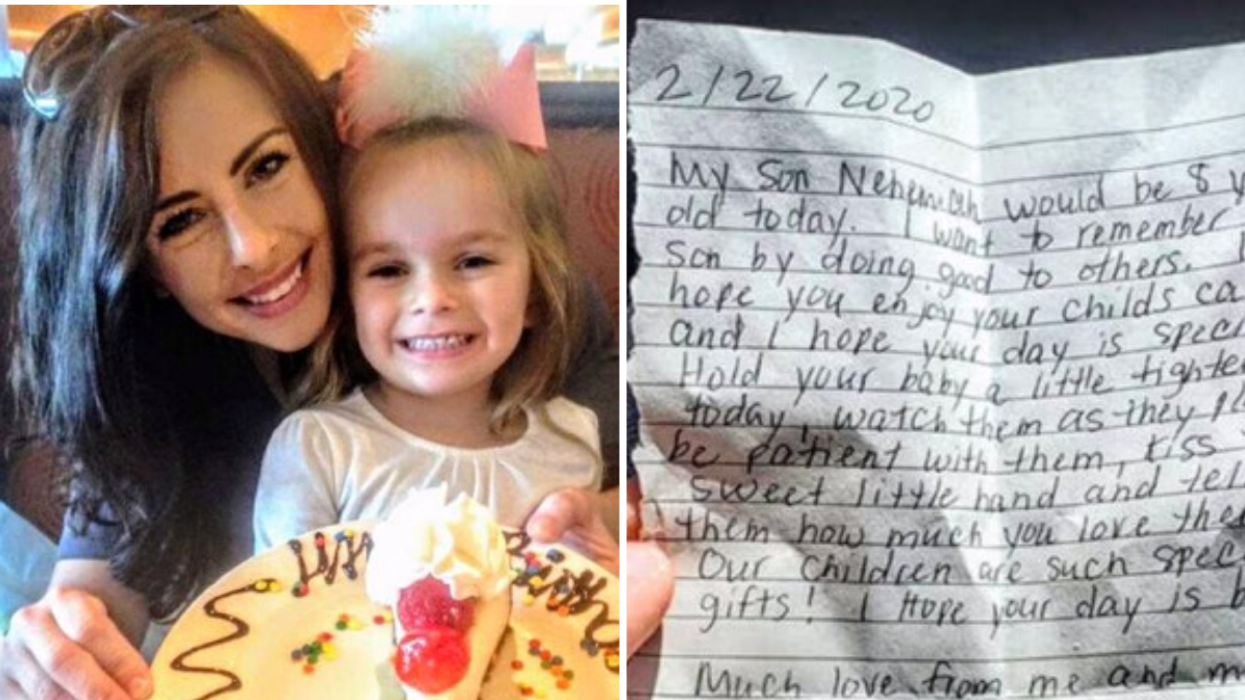 2/22/2020
My Son Nehemiah would be 8 y
old today. I want to remember
Son by doing good to others. I
hope you enjoy your childs ca
and I hope your day is speci
Hold your baby a little tighte
today, watch them as they pl
be patient with them, kiss
sweet little hand and tell
them how much you love the
Our Children are such spec
gifts! I Hope your day is b
Much love from me and m